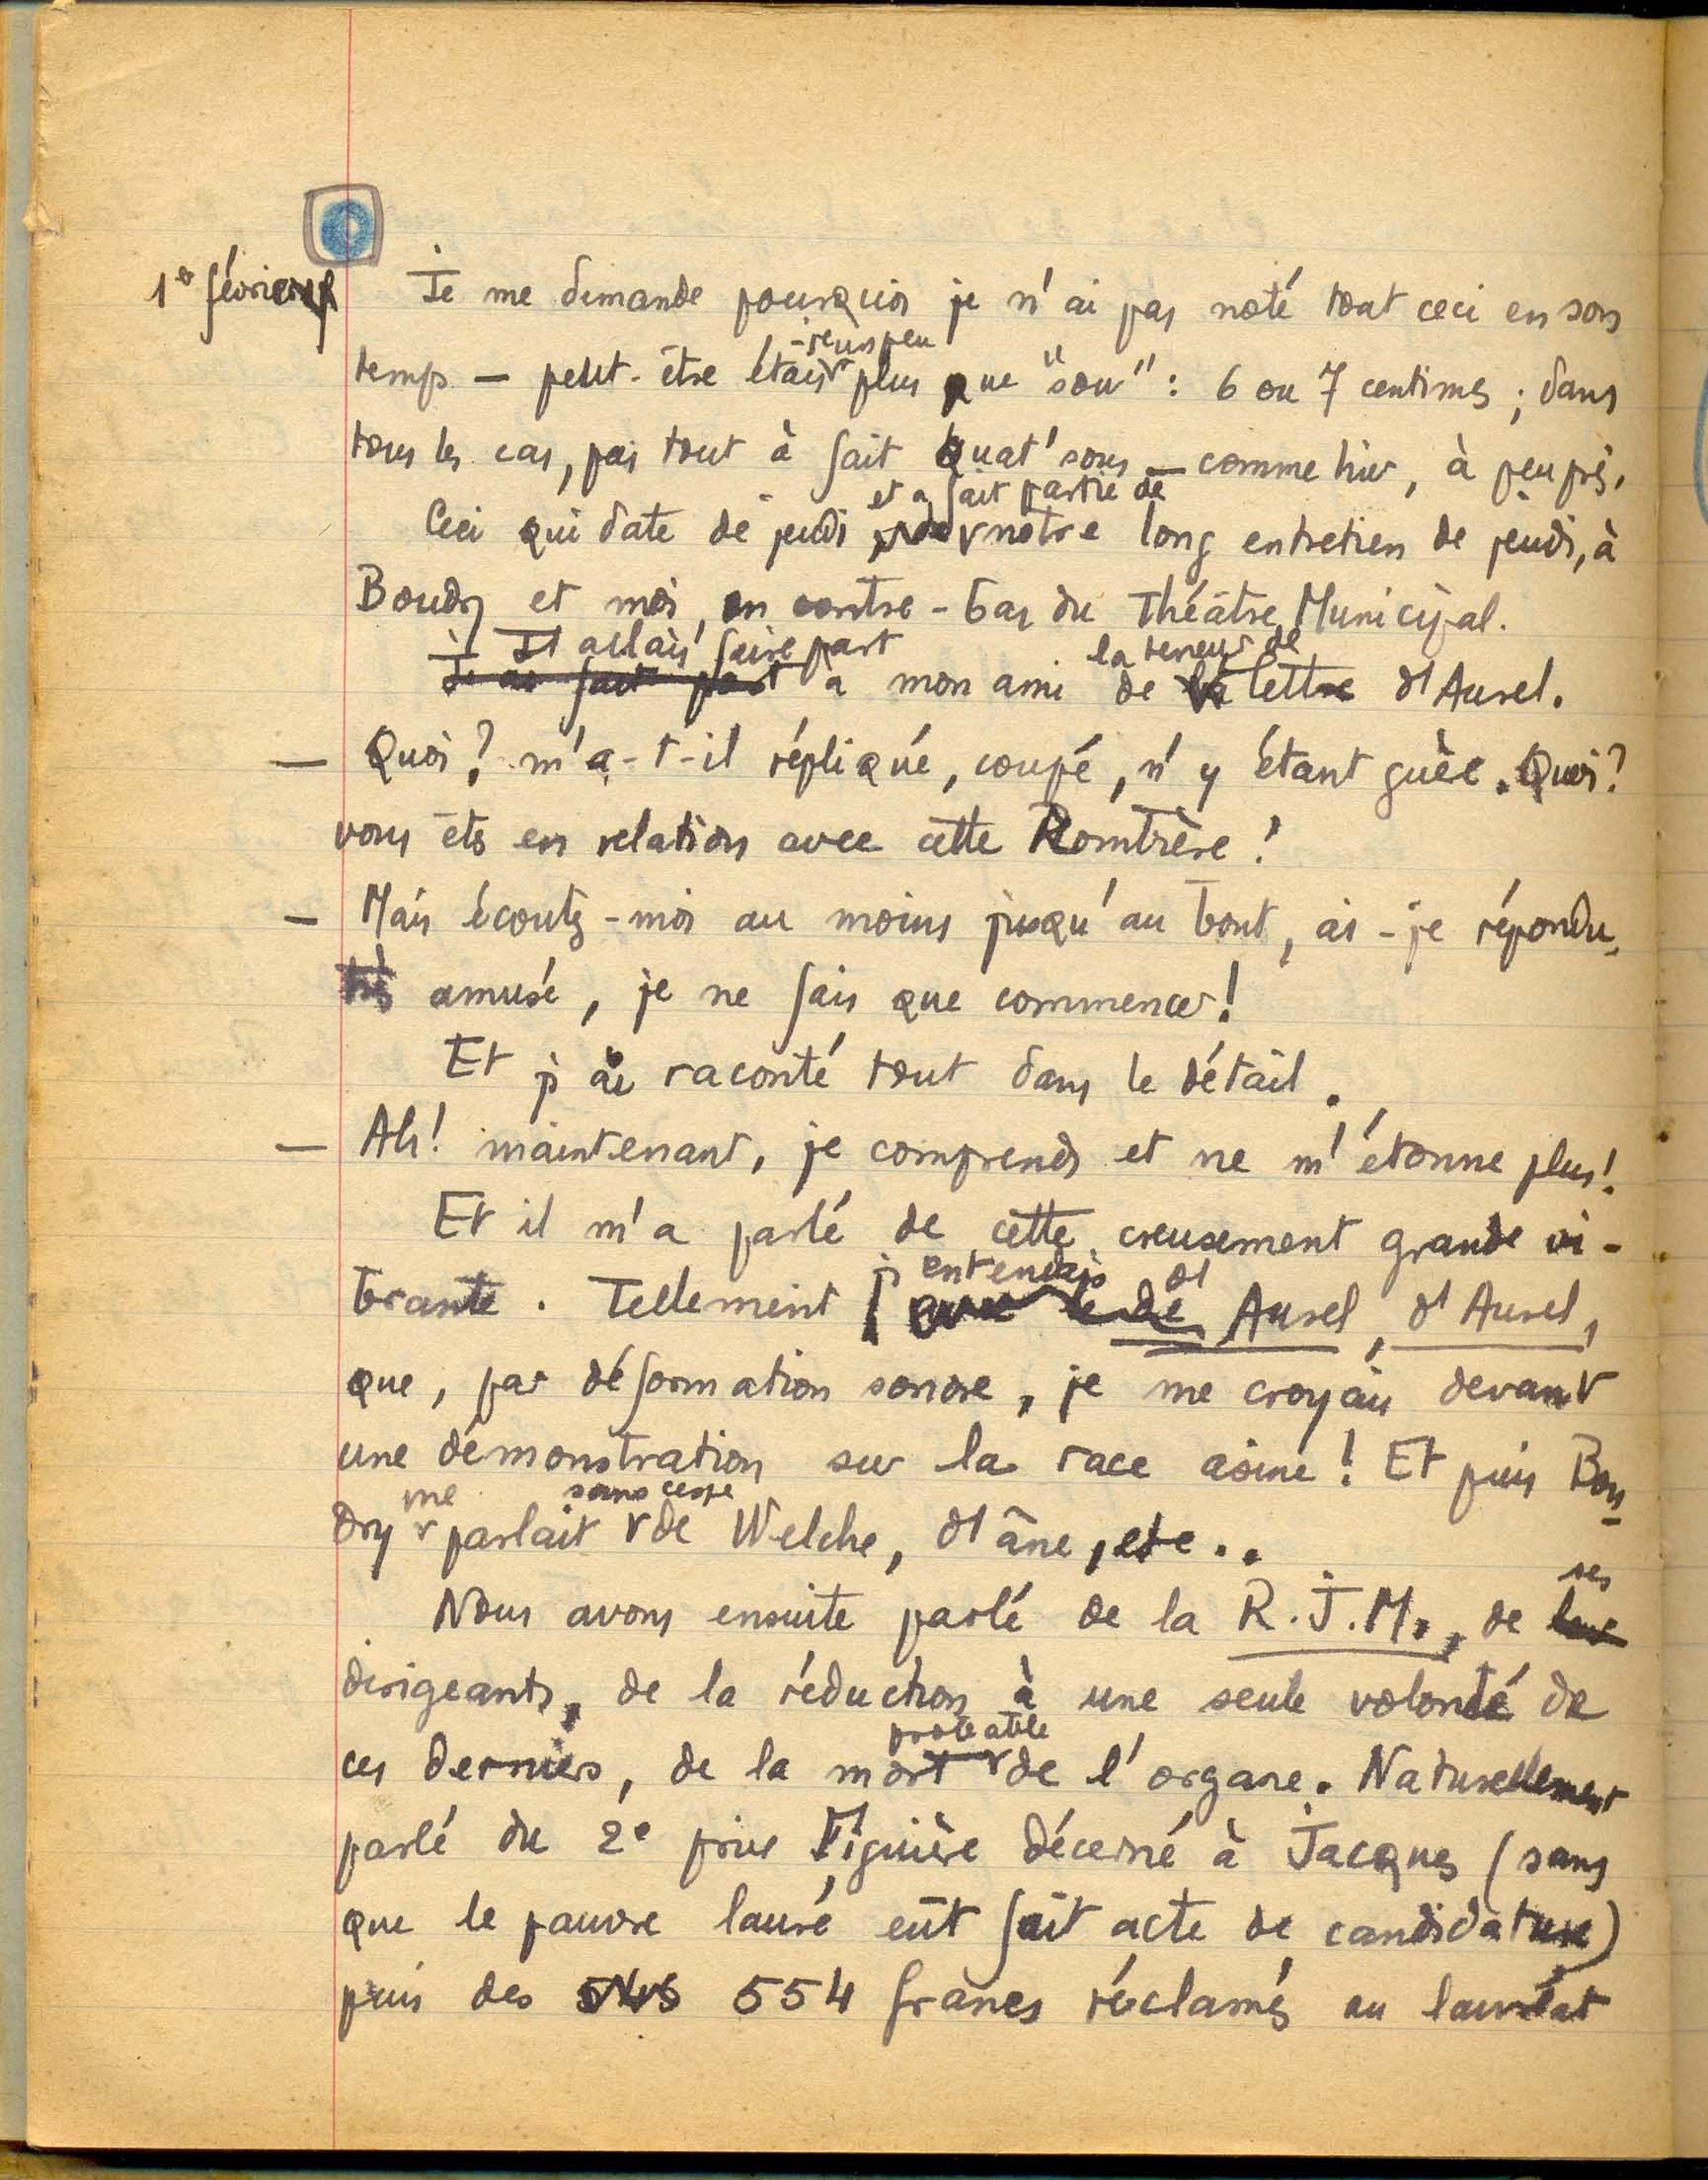 1er février
Je me demande pourquoi je n'ai pas noté tout ceci en son
temps — peut-être étais-je un peu plus que "sou" : 6 ou 7 centimes ; dans
tous les cas, pas tout à fait quat'sous — comme hier, à peu près.
Ceci qui date de jeudi et a fait partie de notre long entretien de jeudi, à
Boudry et moi, en contre-bas du Théâtre Municipal.
J'allais faire part à mon ami de la teneur de la lettre d'Aurel.
— Quoi ? m'a-t-il répliqué, coupé, n'y étant guère. Quoi ?
vous êts en relation avec cette Rombière !
— Mais écoutez-moi au moins jusqu'au bout, ai-je répondu,
très amusé, je ne fais que commencer !
Et j'ai raconté tout dans le détail.
— Ah ! maintenant, je comprends et ne m'étonne plus !
Et il m'a parlé de cette creusement grande vi-
brante. Tellement j'entendais d'Aurel, d'Aurel,
que, par déformation sonore, je me croyais devant
une démonstration sur la race asine ! Et puis Bou-
dry me parlait sans cesse de Welche, d'âne, etc..
Nous avons ensuite parlé de la R.J.M., de ses
dirigeants, de la réduction à une seule volonté de
ces derniers, de la mort probable de l'organe. Naturellement
parlé du 2e prix Figuière décerné à Jacques (sans
que le pauvre lauré eût fait acte de candidature)
puis des 554 francs réclamés au lauréat